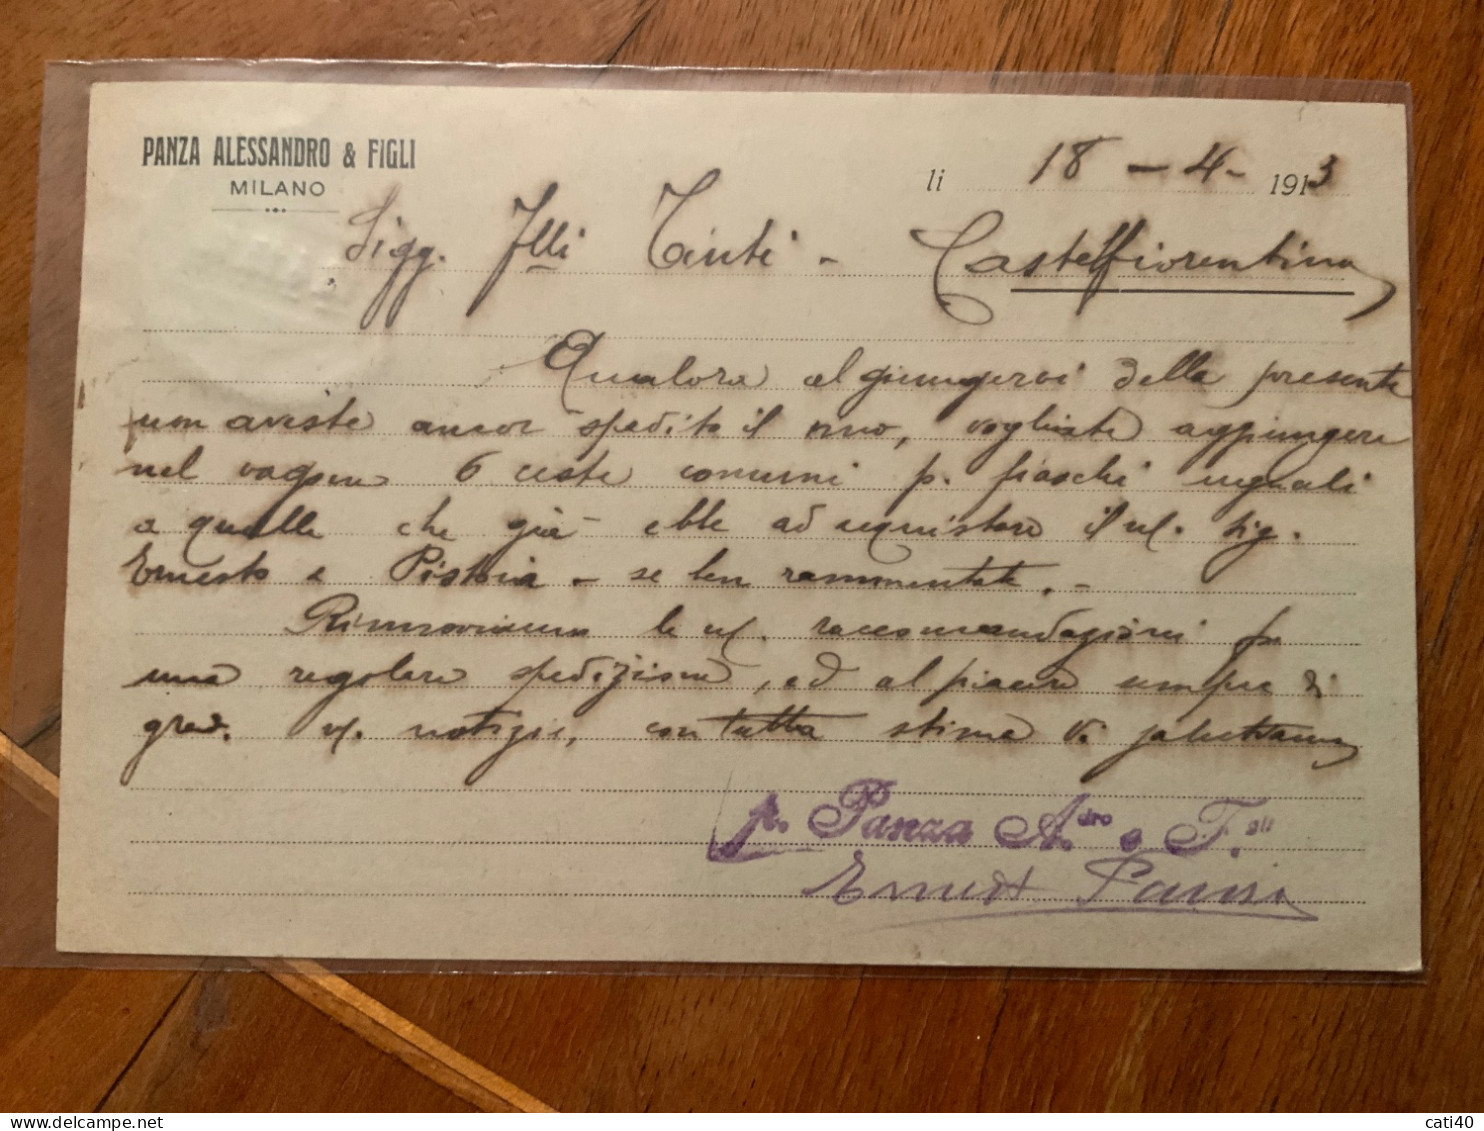 PANZA ALESSANDRO & FIGLI
MILANO
li 18 - 4 - 1913
Sigg. Flli Tinti - Castelfiorentino
Qualora al giungervi della presente
non aveste ancor spedito il vino, vogliate aggiungere
nel vagone 6 ceste comuni p. fiaschi uguali
a quelle che già ebbe ad acquistare il ns. Sig.
Ernesto a Pistoia - se ben rammentate. -
Rinnoviamo le ns. raccomandazioni per
una regolare spedizione, ed al piacere sempre di
grad. vs. notizie, con tutta stima Vi salutiamo
p. Panza A.dro e F.gli
Ernesto Panza
cati40